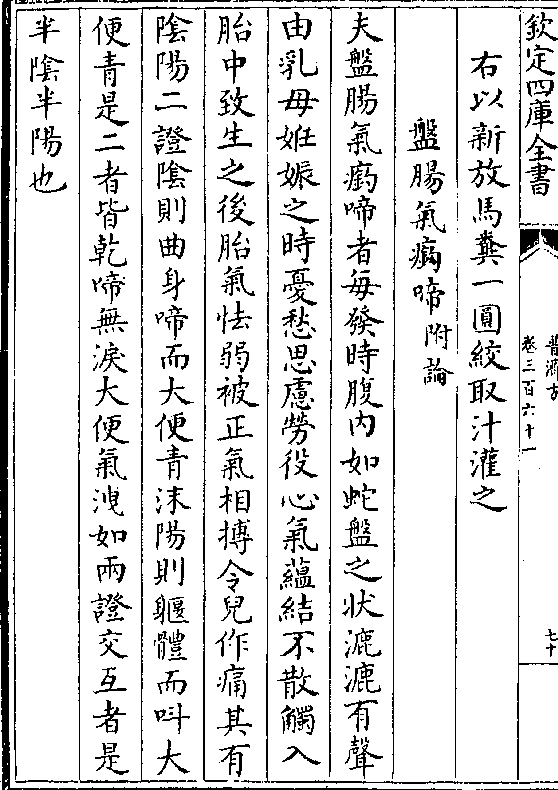 欽定四庫全書
普濟方
卷三百六十一
七十
右以新放馬糞一圓絞取汁灌之
盤腸氣㾓啼附論
夫盤腸氣㾓啼者每發時腹内如蛇盤之狀漉漉有聲
由乳母姙娠之時憂愁思慮勞役心氣蘊結不散觸入
胎中致生之後胎氣怯弱被正氣相搏令兒作痛其有
陰陽二證陰則曲身啼而大便青沫陽則軀體而呌大
便青是二者皆乾啼無淚大便氣洩如兩證交互者是
半陰半陽也